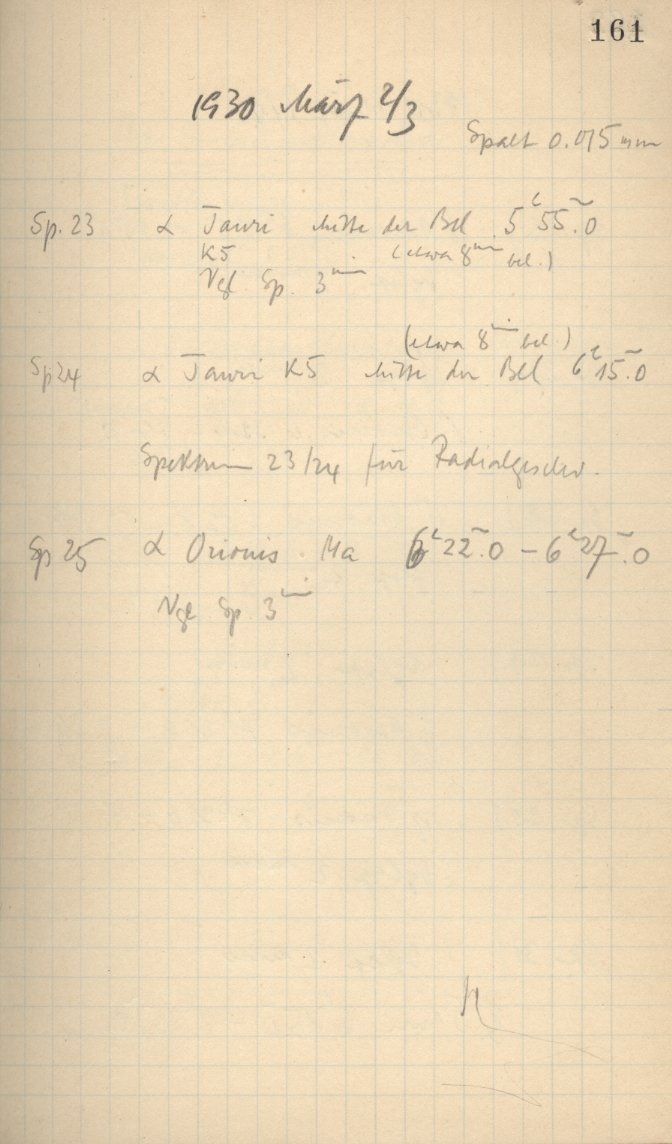 161
1930 März 2/3
Spalt 0.015 mm
Sp. 23 α Tauri Mitte der Bel. 5ʰ55ᵐ.0
K5 (etwa 8ᵐⁱⁿ bel.)
Vgl. Sp. 3ᵐⁱⁿ
(etwa 8ᵐⁱⁿ bel.)
Sp 24 α Tauri K5 Mitte der Bel 6ʰ15ᵐ.0
Spektrum 23/24 für Radialgeschw.
Sp 25 α Orionis Ma 6ʰ22ᵐ.0 – 6ʰ27ᵐ.0
Vgl Sp. 3ᵐⁱⁿ